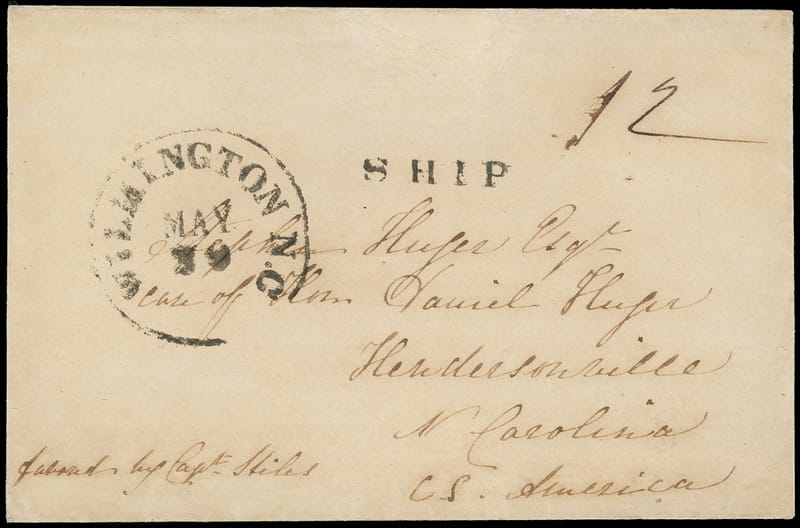 12
SHIP
WILMINGTON N.C.
MAY
30
Stephen Huger Esqr
care of Hon Daniel Huger
Hendersonville
N Carolina
C S. America
favored by Capt. Stiles